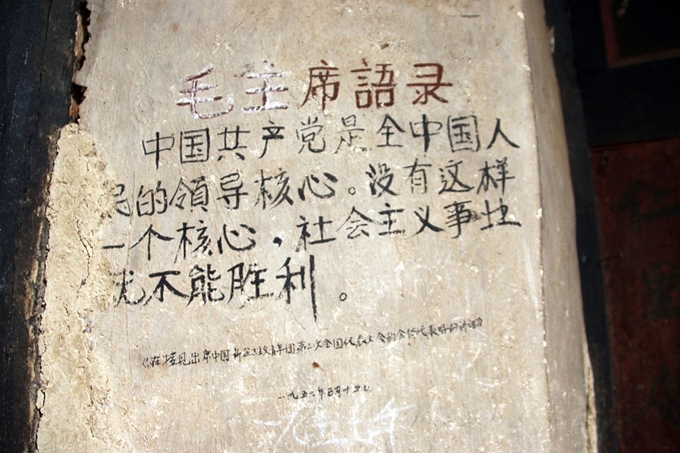 毛主席語录
中国共产党是全中国人
民的領导核心。没有这样
一个核心，社会主义事业
就不能胜利。
《在接見出席中国 青年团第 次全国代表大会的全体代表时的讲话》
一九五 年五月十五日